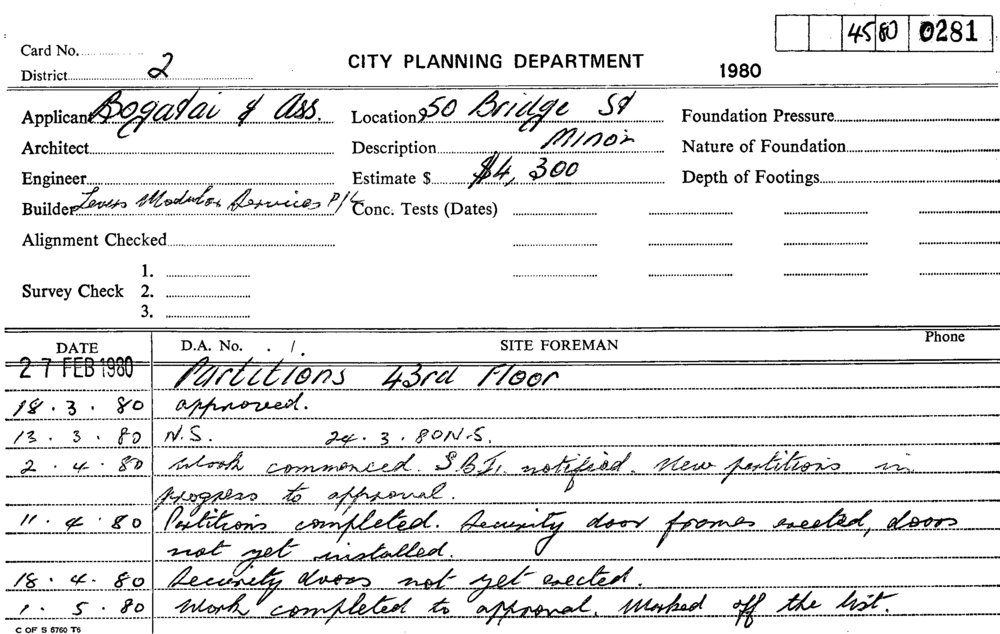 45 80 0281
Card No.
District 2
CITY PLANNING DEPARTMENT
1980
Applicant Bogatai & Ass. Location 50 Bridge St Foundation Pressure
Architect Description Minor Nature of Foundation
Engineer Estimate $ $4,300 Depth of Footings
Builder Levers Modular Services P/L Conc. Tests (Dates)
Alignment Checked
1.
Survey Check 2.
3.
DATE D.A. No. . /. SITE FOREMAN Phone
27 FEB 1980 Partitions 43rd Floor
18.3.80 approved.
13.3.80 N.S. 24.3.80 N.S.
2.4.80 Work commenced. notified. New partitions in
progress to approval.
11.4.80 Partitions completed. Security door frames erected, doors
not yet installed.
18.4.80 Security doors not yet erected.
1.5.80 Work completed to approval. Marked off the list.
C OF S 6760 T6